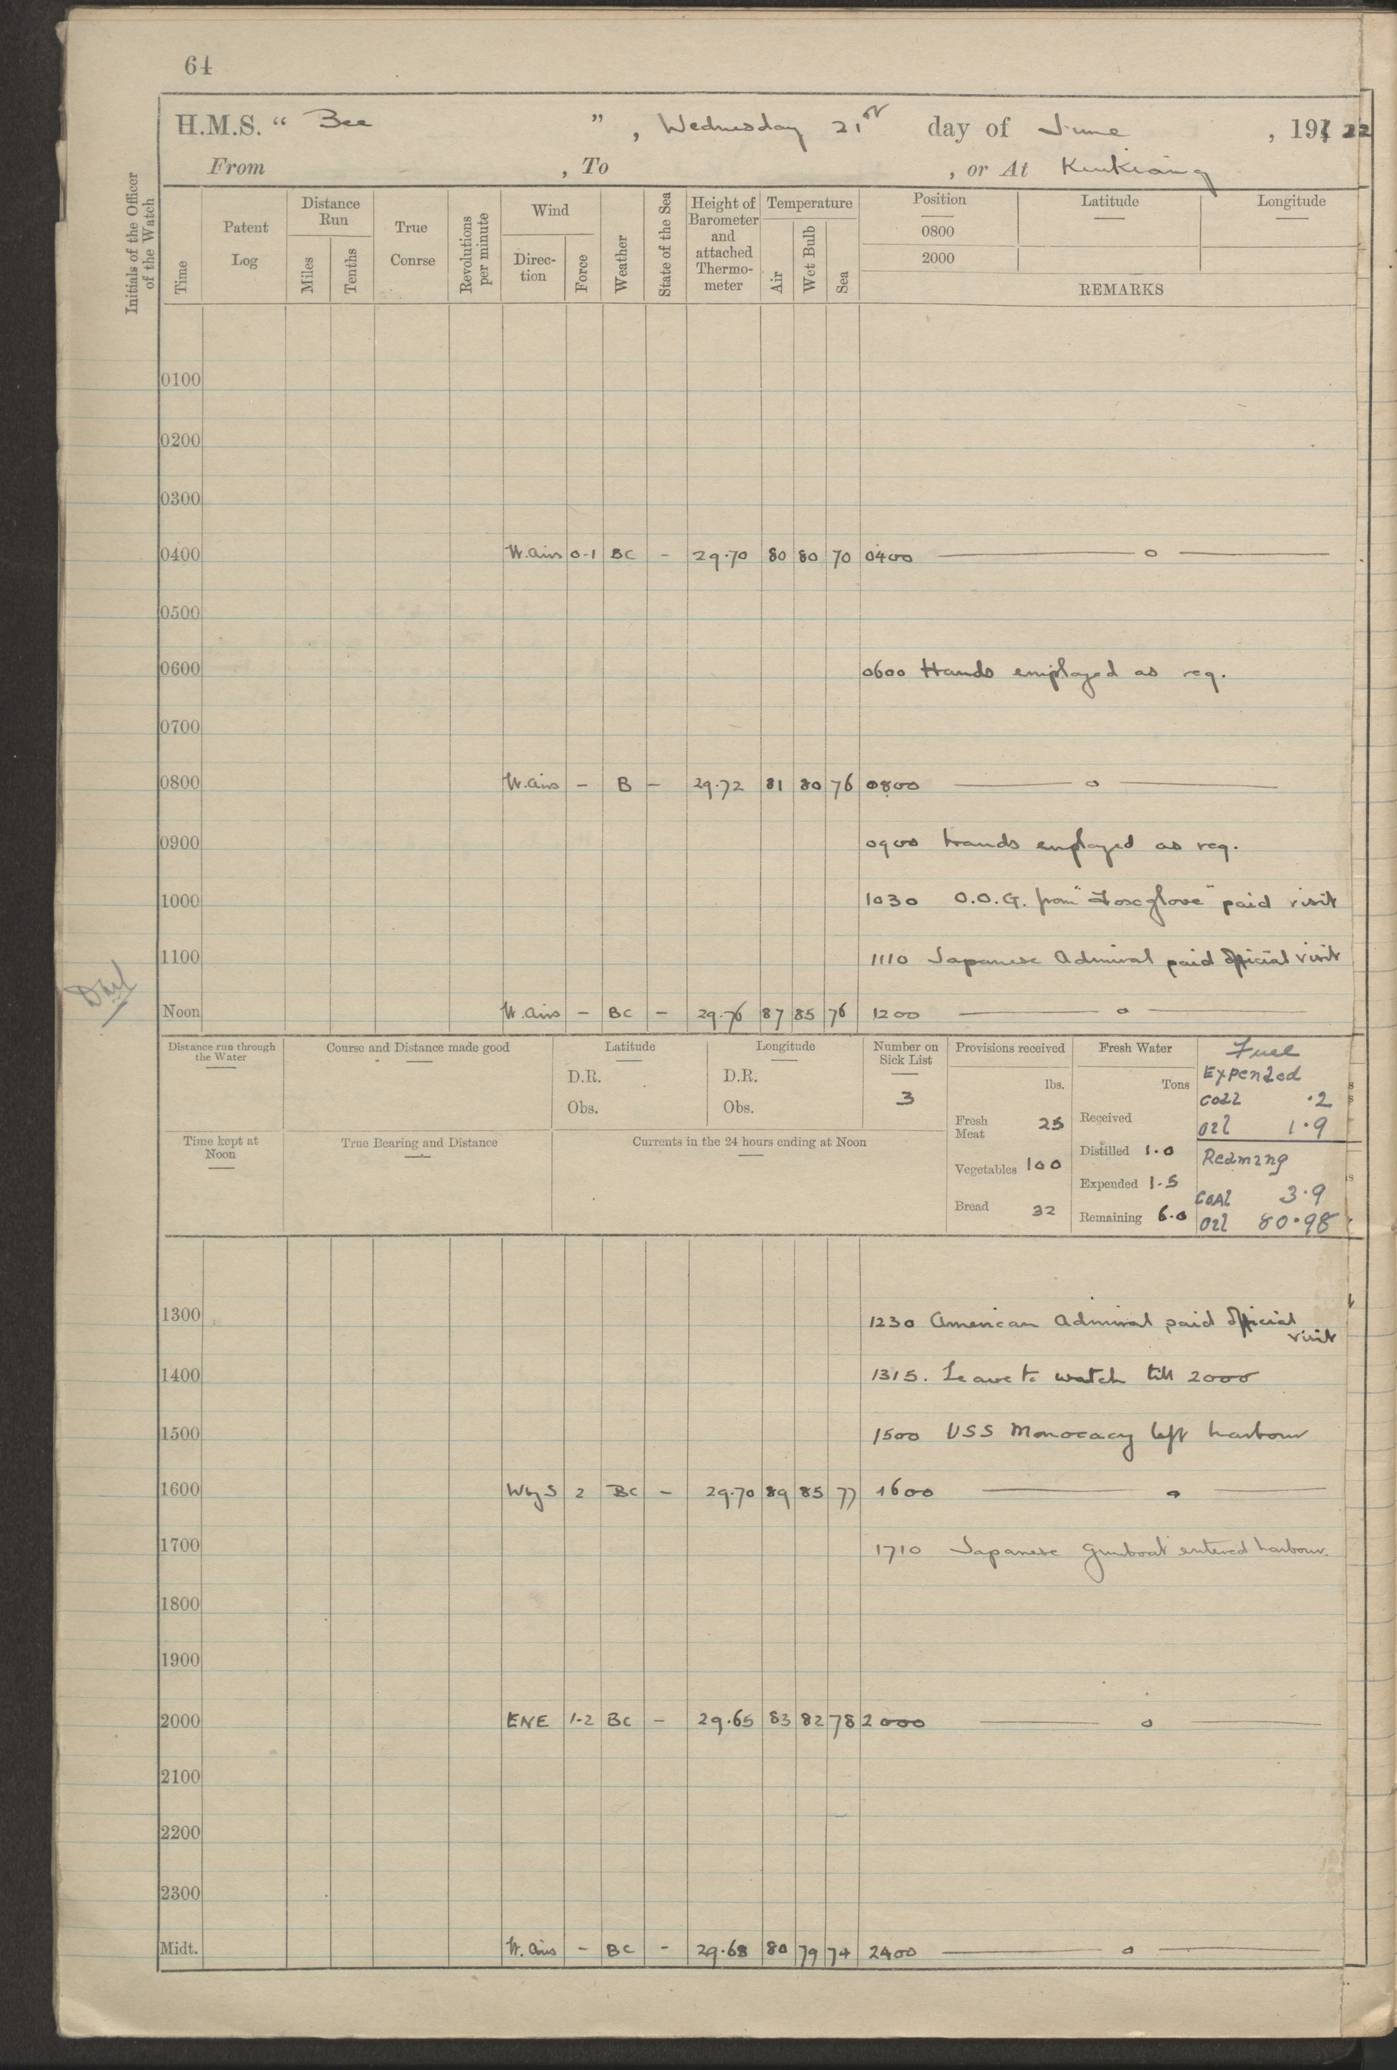 64
H.M.S. “ Bee ” , Wednesday 21st day of June , 191 22
From , To , or At Kiukiang
Initials of the Officer of the Watch
Time
Patent Log
Distance Run
Miles
Tenths
True Conrse
Revolutions per minute
Wind
Direc-tion
Force
Weather
State of the Sea
Height of Barometer and attached Thermo-meter
Temperature
Air
Wet Bulb
Sea
Position
0800
2000
Latitude
Longitude
REMARKS
0100
0200
0300
0400 W.airs 0-1 BC - 29.70 80 80 70 0400 ——— o ———
0500
0600 0600 Hands employed as req.
0700
0800 W.airs - B - 29.72 81 80 76 0800 ——— o ———
0900 0900 Hands employed as req.
1000 1030 O.O.G. from "Foxglove" paid visit
1100 1110 Japanese Admiral paid official visit
Noon W.airs - BC - 29.76 87 85 76 1200 ——— o ———
Distance run through the Water
Course and Distance made good
Latitude
D.R.
Obs.
Longitude
D.R.
Obs.
Number on Sick List
3
Provisions received
lbs.
Fresh Meat 25
Vegetables 100
Bread 32
Fresh Water
Tons
Received
Distilled 1.0
Expended 1.5
Remaining 6.0
Fuel
Expended
Coal .2
Oil 1.9
Remaing
Coal 3.9
Oil 80.98
Time kept at Noon
True Bearing and Distance
Currents in the 24 hours ending at Noon
1300 1230 American Admiral paid official visit
1400 1315. Leave to watch till 2000
1500 1500 USS Monocacy left harbour
1600 WbyS 2 BC - 29.70 89 85 77 1600 ——— o ———
1700 1710 Japanese gunboat entered harbour.
1800
1900
2000 ENE 1-2 BC - 29.65 83 82 78 2000 ——— o ———
2100
2200
2300
Midt. W.airs - BC - 29.68 80 79 74 2400 ——— o ———